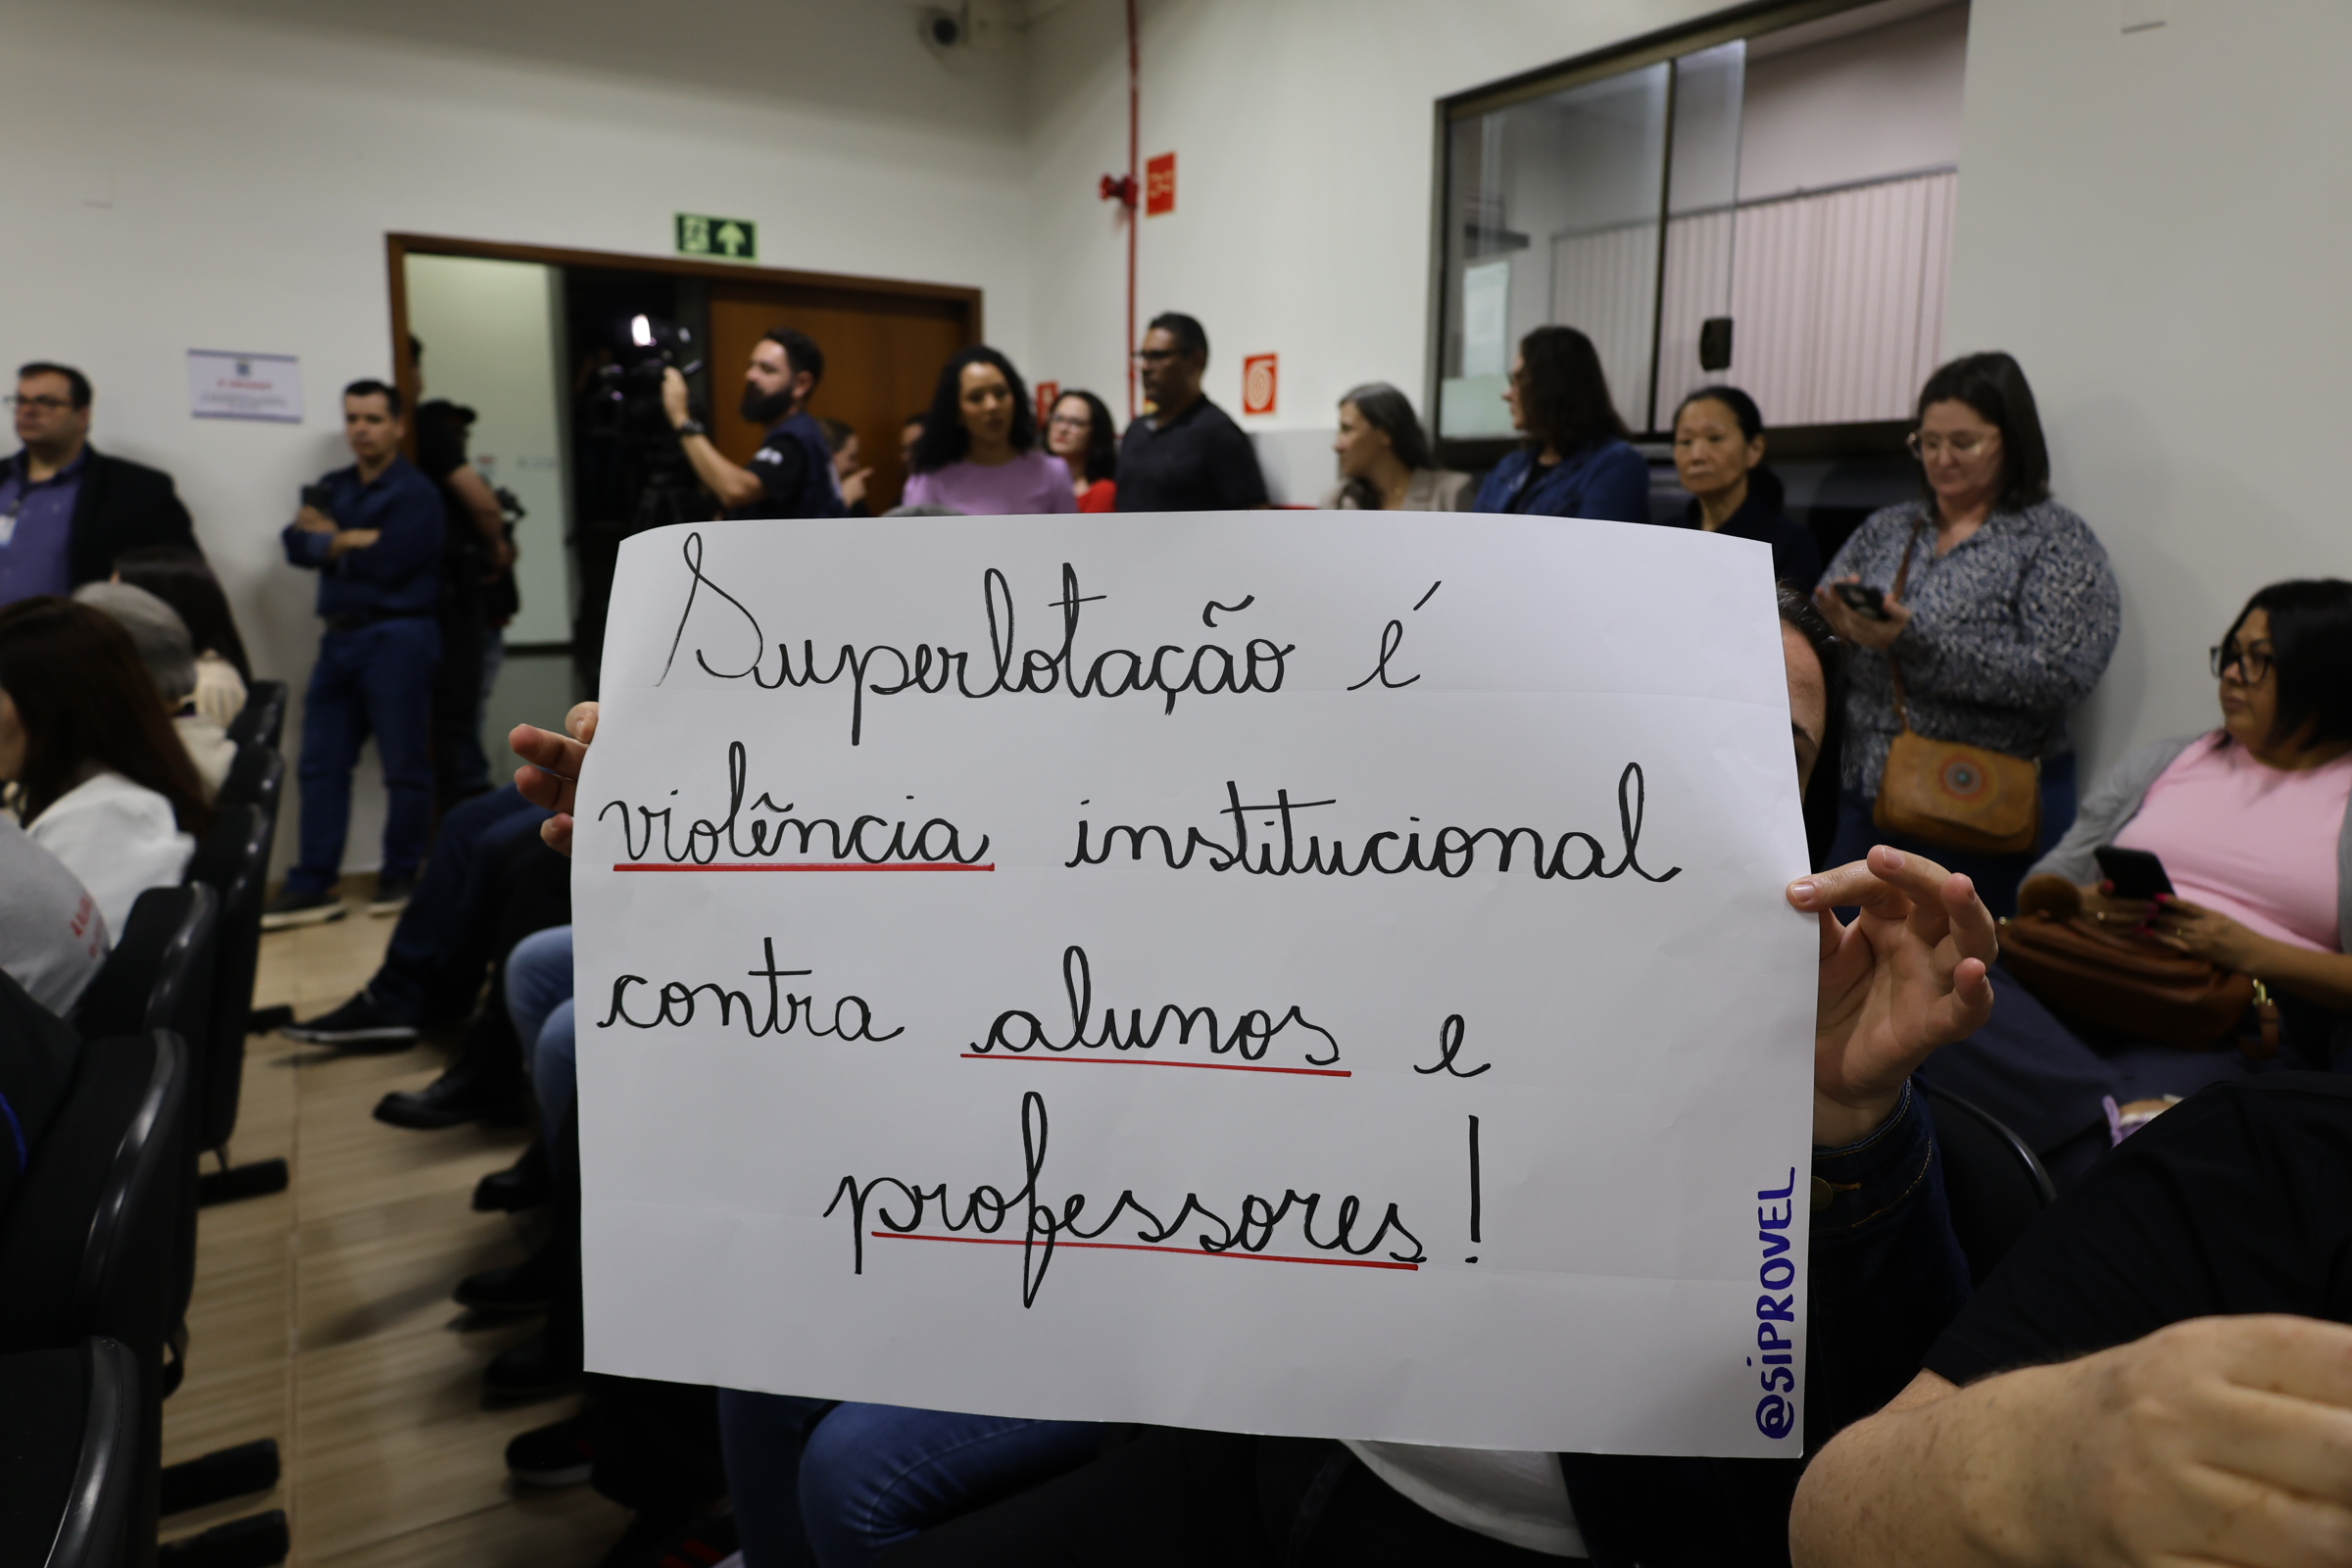 Superlotação é
violência institucional
contra alunos e
professores!
@SiPROVEL